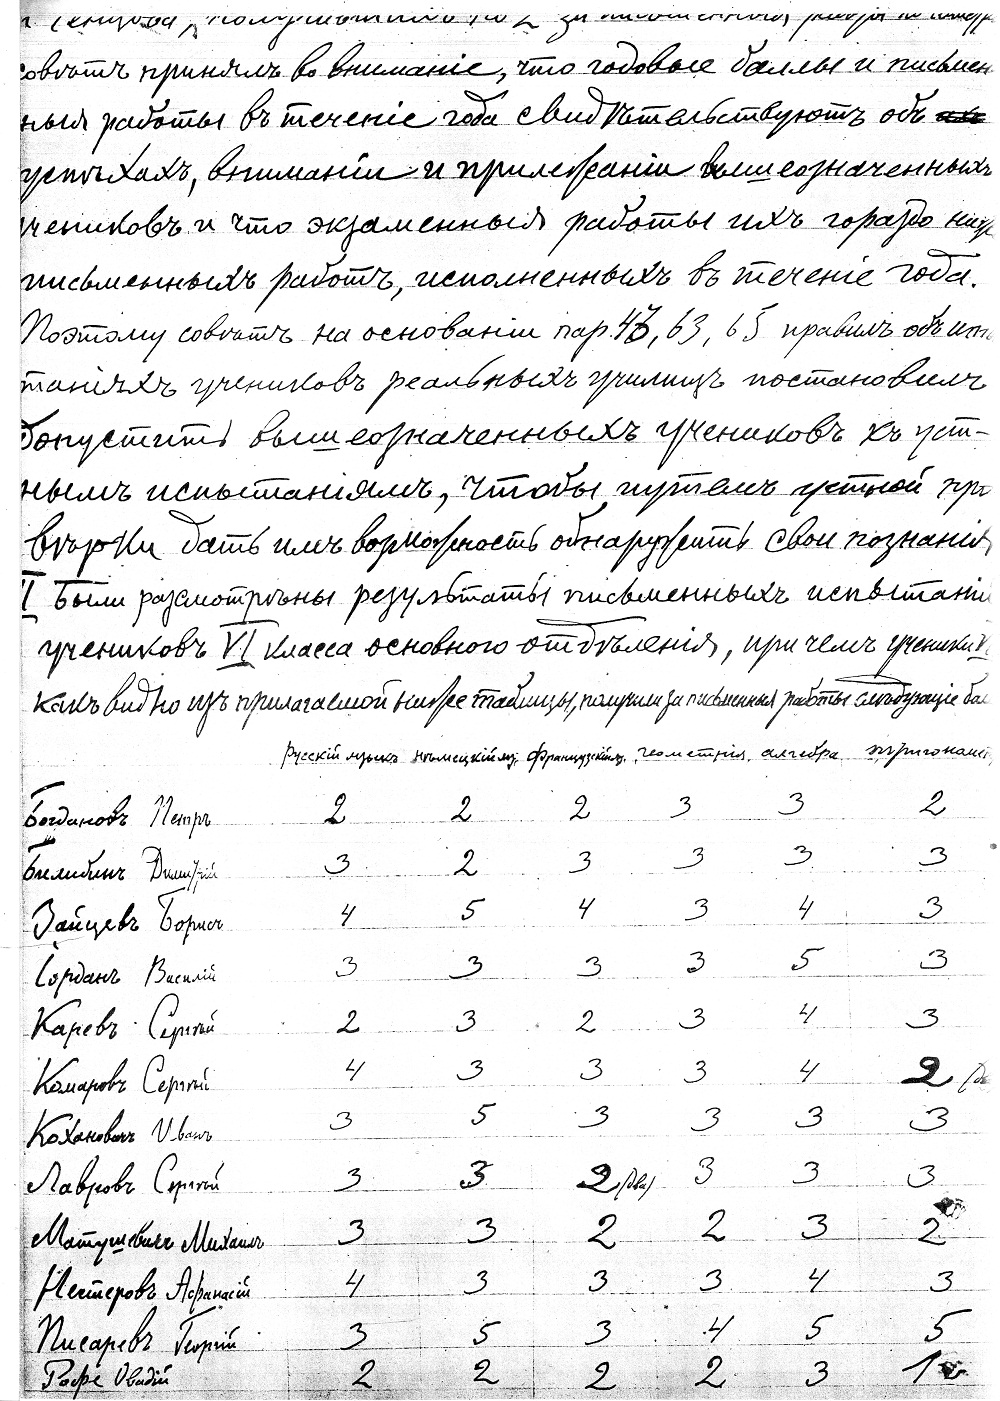 получившихъ по 2 за письменныя работы по
совѣтъ принялъ во вниманіе, что годовые баллы и письмен
ныя работы въ теченіе года свидѣтельствуютъ объ
успѣхахъ, вниманіи и прилежаніи вышеозначенныхъ
учениковъ и что экзаменныя работы ихъ гораздо ниже
письменныхъ работъ, исполненныхъ въ теченіе года.
Поэтому совѣтъ на основаніи пар. 43, 63, 65 правилъ объ испы
таніяхъ учениковъ реальныхъ училищъ постановилъ
допустить вышеозначенныхъ учениковъ къ уст-
нымъ испытаніямъ, чтобы путемъ устной про
вѣрки дать имъ возможность обнаружить свои познанія
II Были разсмотрѣны результаты письменныхъ испытаній
учениковъ VI класса основного отдѣленія, при чемъ ученики
какъ видно изъ прилагаемой ниже таблицы, получили за письменныя работы слѣдующіе бал
русскій языкъ нѣмецкій яз. французскій яз. геометрія алгебра тригономет
Богдановъ Петръ 2 2 2 3 3 2
Билибинъ Димитрій 3 2 3 3 3 3
Зайцевъ Борисъ 4 5 4 3 4 3
Іорданъ Василій 3 3 3 3 5 3
Каревъ Сергѣй 2 3 2 3 4 3
Комаровъ Сергѣй 4 3 3 3 4 2
Кохановичъ Иванъ 3 5 3 3 3 3
Лавровъ Сергѣй 3 3 2 (два) 3 3 3
Матушевичъ Михаилъ 3 3 2 2 3 2
Нестеровъ Афанасій 4 3 3 3 4 3
Писаревъ Георгій 3 5 3 4 5 5
Рофе Овадій 2 2 2 2 3 1